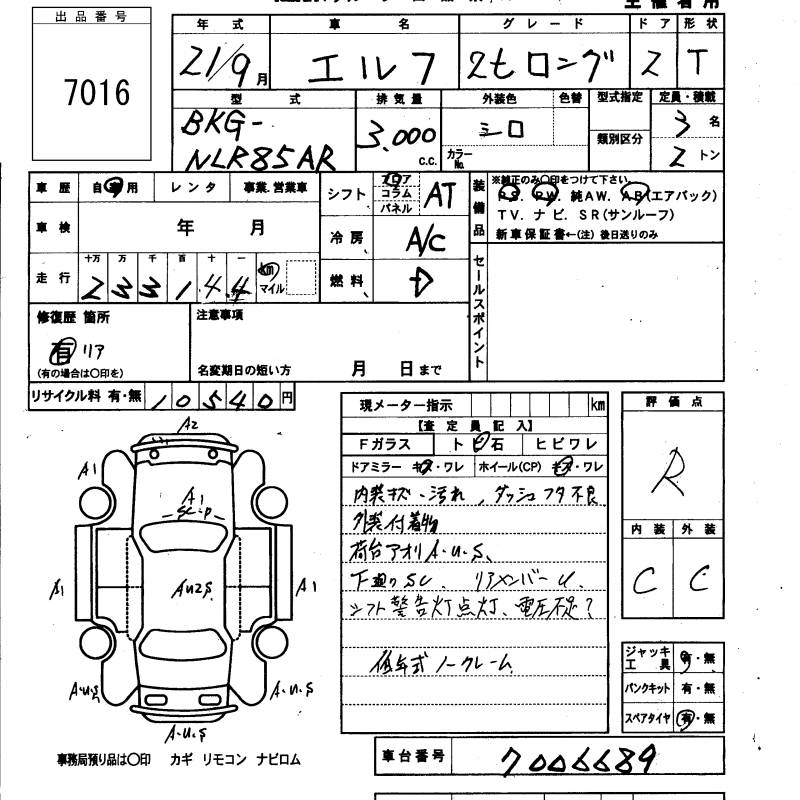 出品番号
7016
年式 車名 グレード ドア 形状
21/9月 エルフ 2tロング 2 T
型式 排気量 外装色 色替 型式指定 定員・積載
BKG-
NLR85AR 3.000 C.C. シロ カラーNo. 類別区分 3名
2トン
車歴 自家用 レンタ 事業.営業車 シフト フロア コラム パネル AT
装備品 ※純正のみ〇印をつけて下さい。
PS. PW. 純AW. AB(エアバック)
TV. ナビ. SR(サンルーフ)
新車保証書←(注) 後日送りのみ
車検 年 月 冷房 A/C
走行 十万 万 千 百 十 一 km マイル
2 3 3 1 4 4
燃料 D
セールスポイント
修復歴 箇所
有 リア
(有の場合は〇印を)
注意事項
名変期日の短い方 月 日まで
リサイクル料 有・無 10540円
現メーター指示 km
【査定員記入】
Fガラス トビ石 ヒビワレ
ドアミラー キズ・ワレ ホイール(CP) キズ・ワレ
内装キズ・汚れ、ダッシュフタ不良
外装付着物
荷台アオリA.U.S、
下廻りSC. リアメンバーU.
シフト警告灯点灯、電圧不足?
低年式ノークレーム
評価点
R
内装 外装
C C
A2
A1
A1
SC-P
A1
AU2S
A1
A.U.S
A.U.S
A.U.S
ジャッキ工具 有・無
パンクキット 有・無
スペアタイヤ 有・無
事務局預り品は〇印 カギ リモコン ナビロム
車台番号 7006689